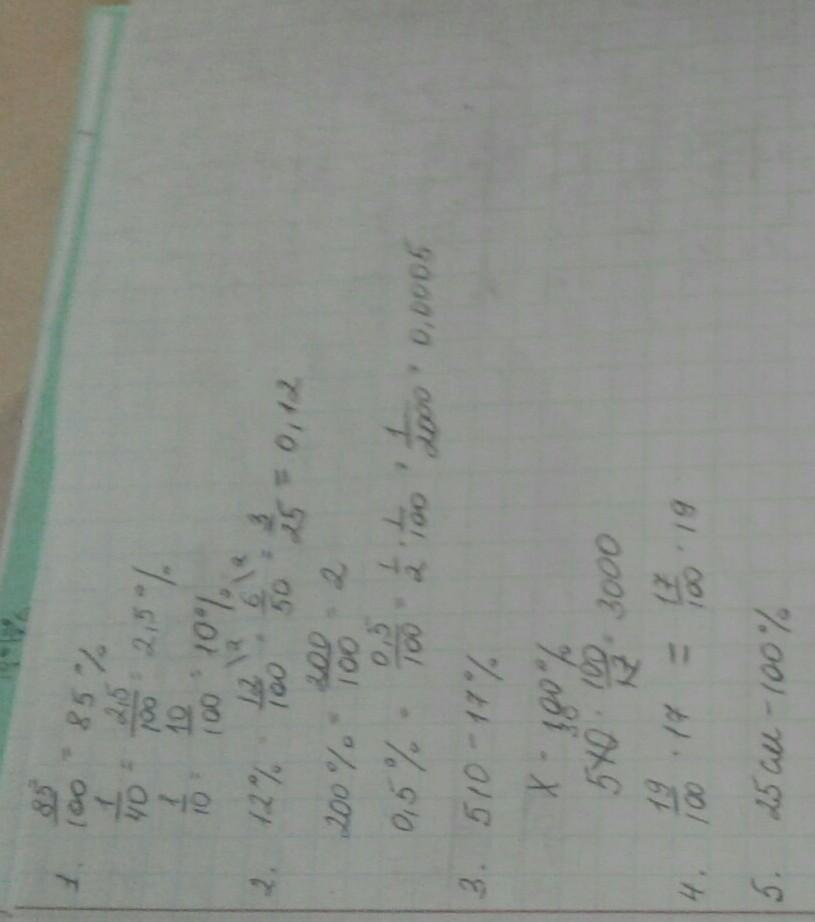 1. 85/100 = 85%
1/40 = 2,5/100 = 2,5%
1/10 = 10/100 = 10%
2. 12% = 12/100 \2 = 6/50 \2 = 3/25 = 0,12
200% = 200/100 = 2
0,5% = 0,5/100 = 1/2 · 1/100 = 1/2000 = 0,0005
3. 510 - 17%
x - 100%
30
510 · 100/17 = 3000
4. 19/100 · 17 = 17/100 · 19
5. 25 см - 100%